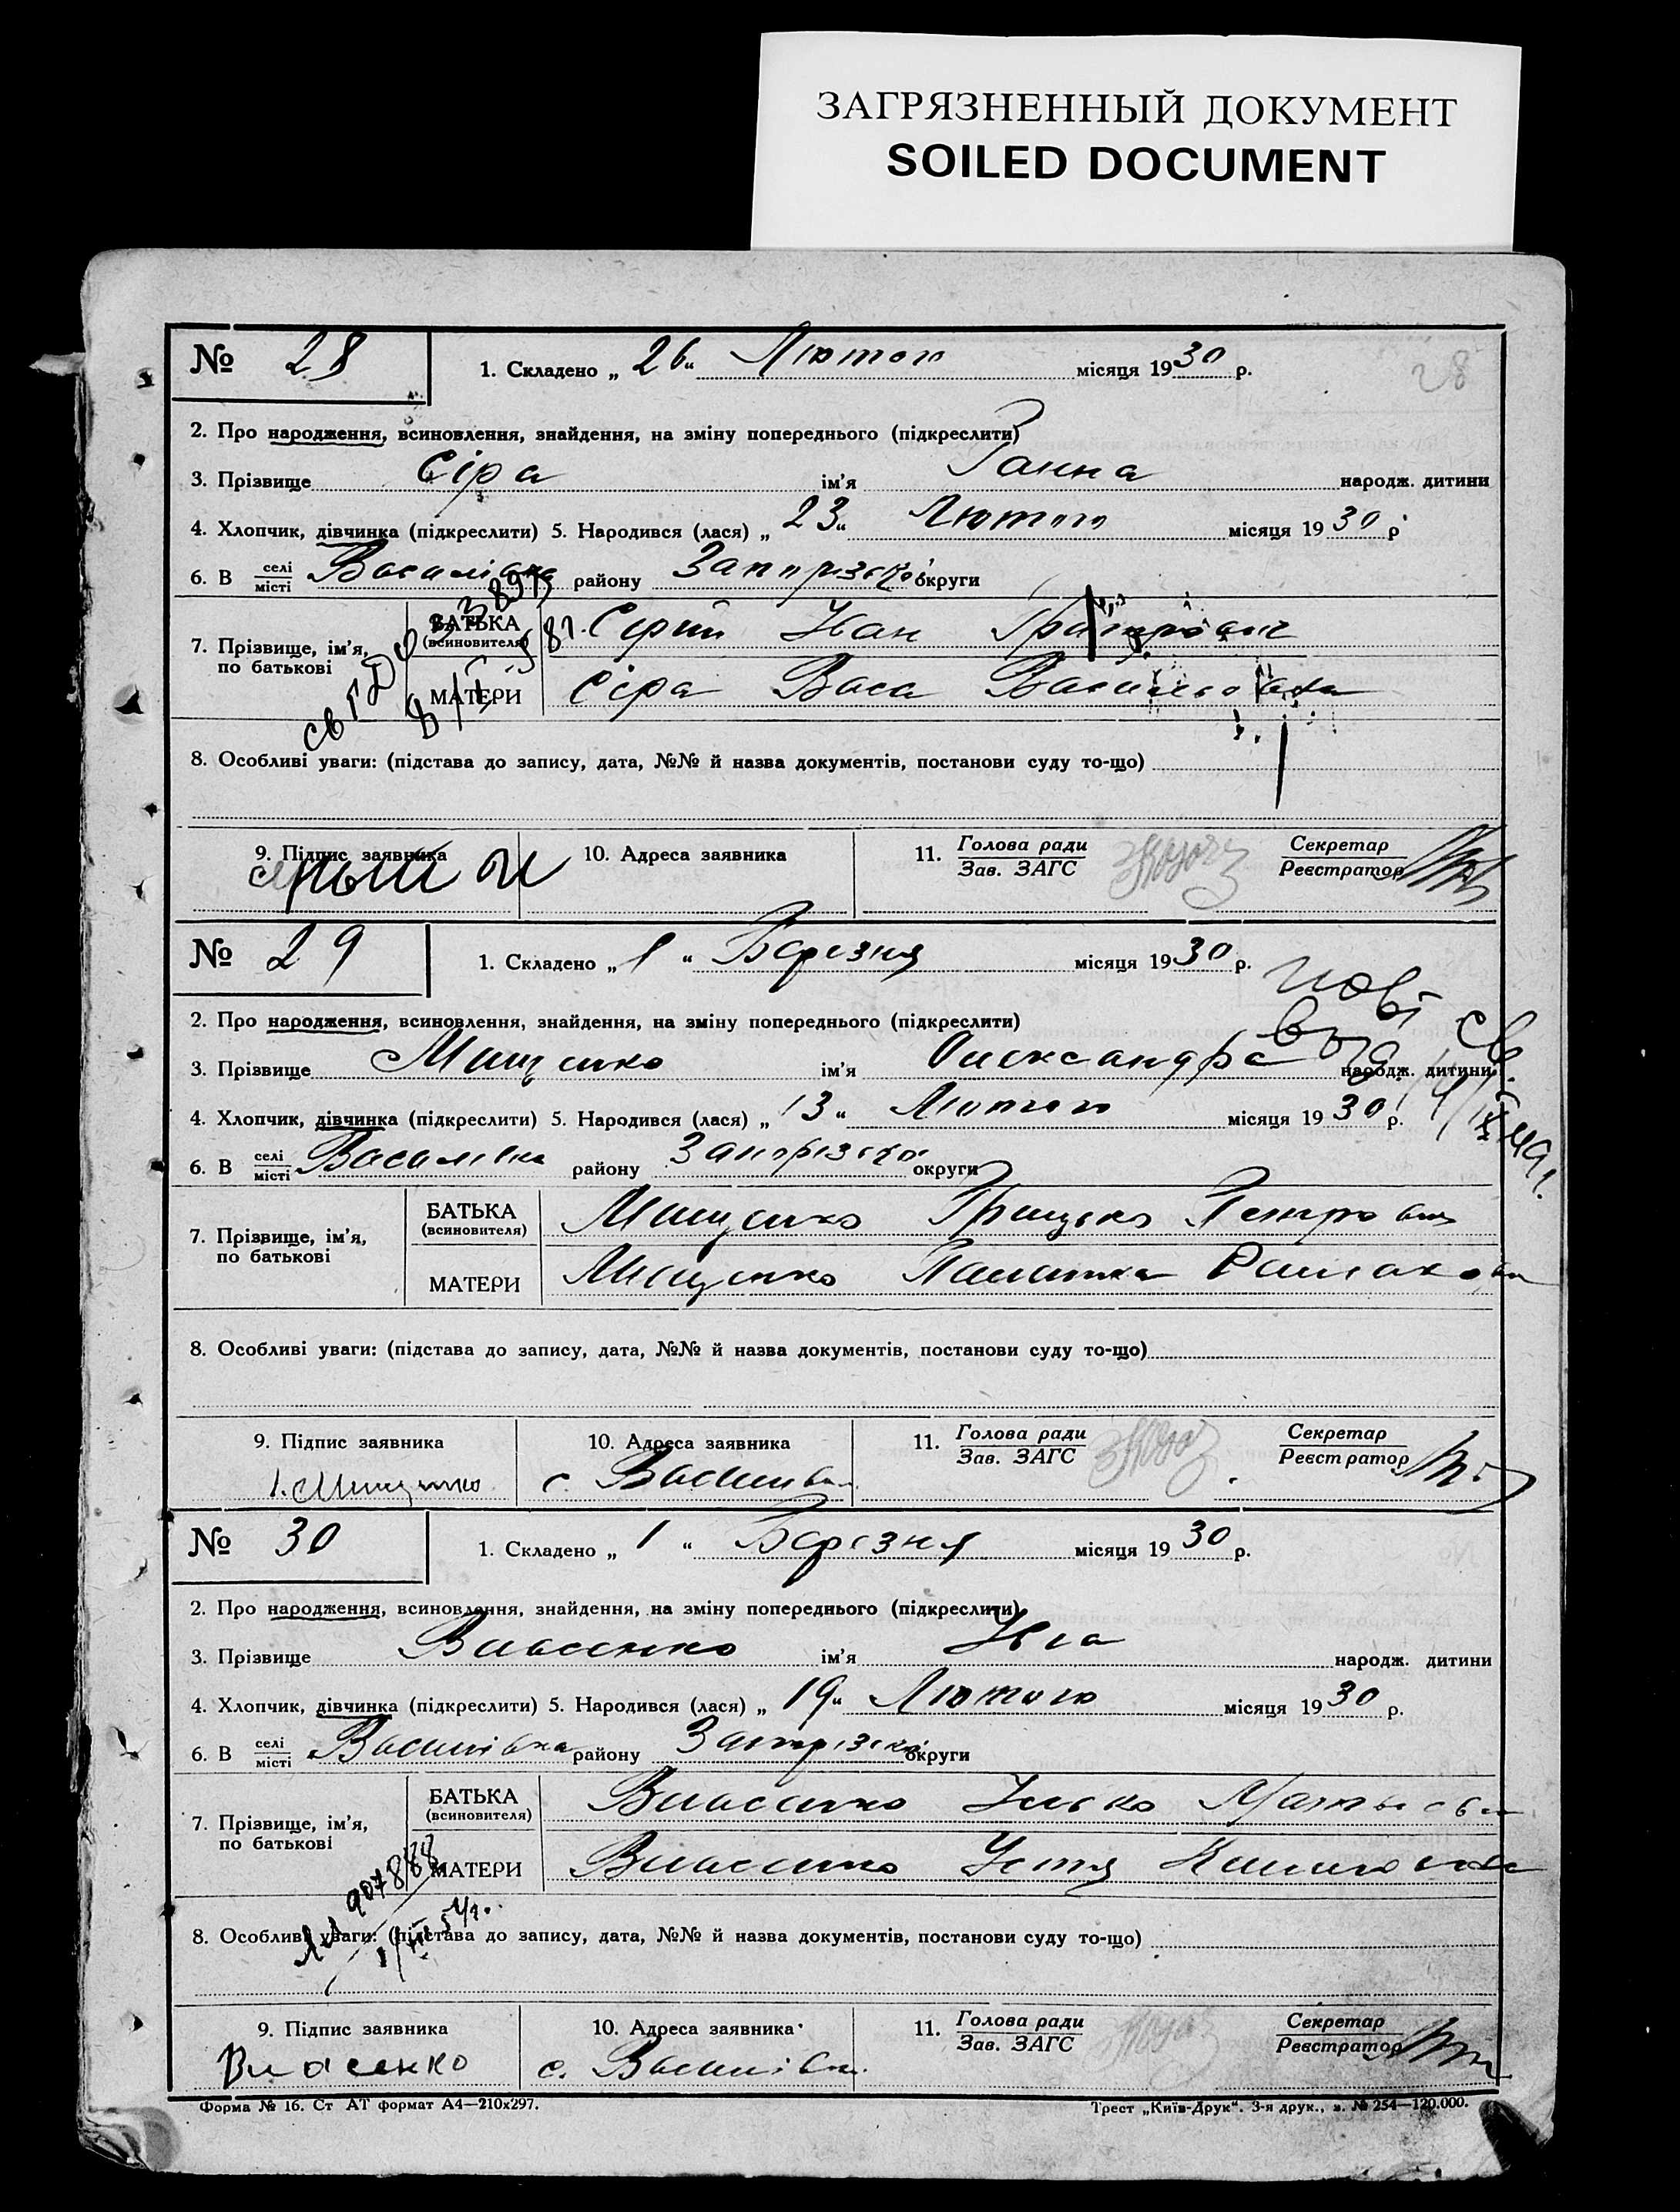 ЗАГРЯЗНЕННЫЙ ДОКУМЕНТ
SOILED DOCUMENT
№ 28
1. Складено „ 26 “ Лютого місяця 1930 р.
28
2. Про народження, всиновлення, знайдення, на зміну попереднього (підкреслити)
3. Прізвище Сіра ім'я Ганна народж. дитини
4. Хлопчик, дівчинка (підкреслити) 5. Народився (лася) „ 23 “ Лютого місяця 1930 р
6. В селі місті Василівка району Запорізької округи
7. Прізвище, ім'я, по батькові
БАТЬКА (всиновителя) Сірий Іван
МАТЕРИ Сіра Васа Василівна
8. Особливі уваги: (підстава до запису, дата, №№ й назва документів, постанови суду то-що)
9. Підпис заявника
10. Адреса заявника
11. Голова ради Зав. ЗАГС
Секретар Реєстратор
№ 29
1. Складено „ 1 “ Березня місяця 1930 р.
2. Про народження, всиновлення, знайдення, на зміну попереднього (підкреслити)
3. Прізвище Мищенко ім'я Олександра народж. дитини
4. Хлопчик, дівчинка (підкреслити) 5. Народився (лася) „ 13 “ Лютого місяця 1930 р.
6. В селі місті Василівка району Запорізької округи
7. Прізвище, ім'я, по батькові
БАТЬКА (всиновителя) Мищенко Грицько Петрович
МАТЕРИ Мищенко
8. Особливі уваги: (підстава до запису, дата, №№ й назва документів, постанови суду то-що)
9. Підпис заявника
Мищенко
10. Адреса заявника
с. Василівка
11. Голова ради Зав. ЗАГС
Секретар Реєстратор
№ 30
1. Складено „ 1 “ Березня місяця 1930 р.
2. Про народження, всиновлення, знайдення, на зміну попереднього (підкреслити)
3. Прізвище Власенко ім'я народж. дитини
4. Хлопчик, дівчинка (підкреслити) 5. Народився (лася) „ 19 “ Лютого місяця 1930 р.
6. В селі місті Василівка району Запорізької округи
7. Прізвище, ім'я, по батькові
БАТЬКА (всиновителя) Власенко Ілько
МАТЕРИ Власенко Устя
8. Особливі уваги: (підстава до запису, дата, №№ й назва документів, постанови суду то-що)
9. Підпис заявника
Власенко
10. Адреса заявника
с. Василівка
11. Голова ради Зав. ЗАГС
Секретар Реєстратор
Форма № 16. Ст АТ формат А4—210х297.
Трест „Київ-Друк“. 3-я друк., з. № 254—120.000.